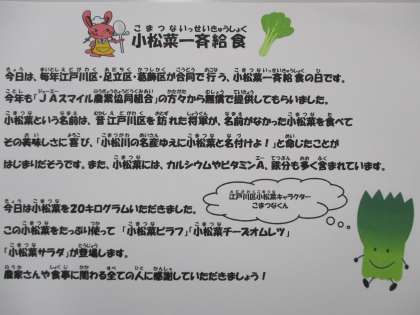 小松菜一斉給食
今日は、毎年江戸川区・足立区・葛飾区が合同で行う、小松菜一斉給食の日です。
今年も「JAスマイル農業協同組合」の方々から無償で提供してもらいました。
小松菜という名前は、昔江戸川区を訪れた将軍が、名前がなかった小松菜を食べて
その美味しさに喜び、「小松川の名産ゆえに小松菜と名付けよ!」と命じたことが
はじまりだそうです。また、小松菜には、カルシウムやビタミンA、鉄分も多く含まれています。
江戸川区小松菜キャラクター
こまつなくん
今日は小松菜を20キログラムいただきました。
この小松菜をたっぷり使って「小松菜ピラフ」「小松菜チーズオムレツ」
「小松菜サラダ」が登場します。
農家さんや食事に関わる全ての人に感謝していただきましょう!